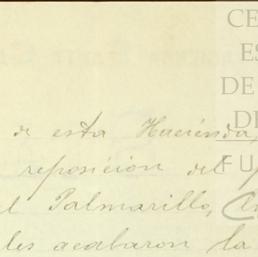 CE
ES
DE
DE
FU
de esta Hacienda,
reposición del
el Palmarillo,
les acabaron la